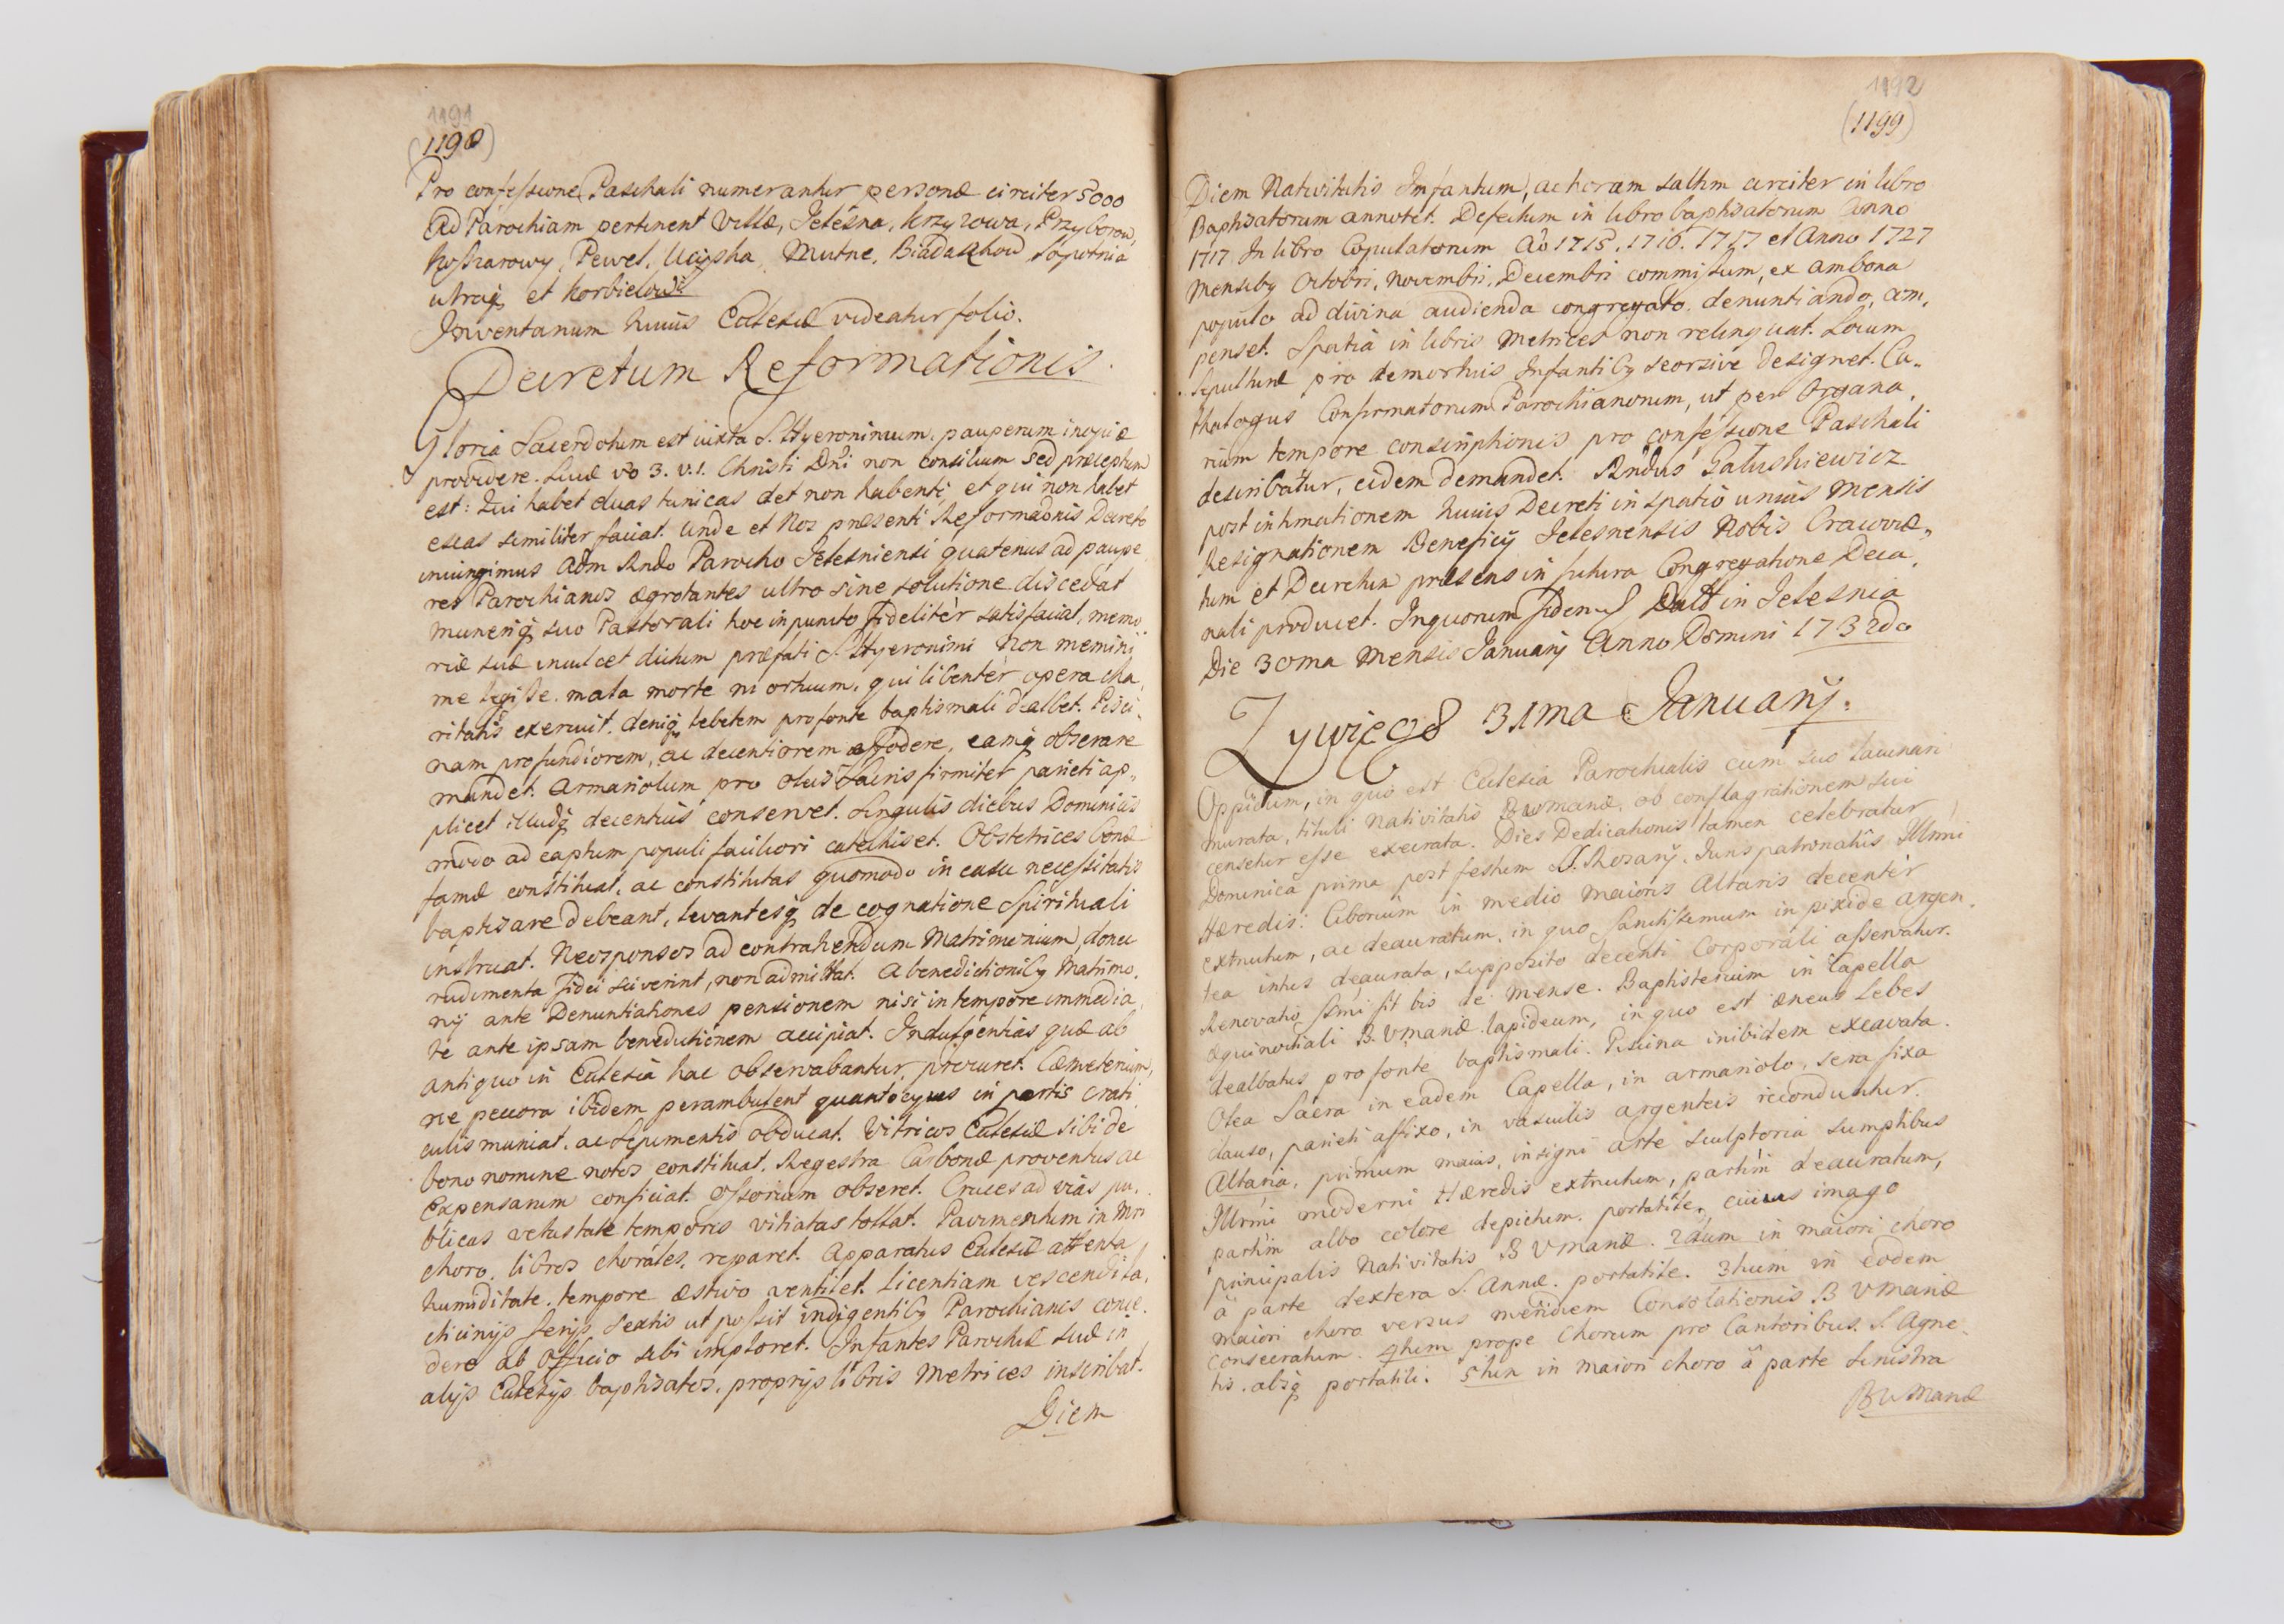 1191
(1198)
Pro confessione Paschali numerantur personæ circiter 5000
Ad Parochiam pertinent Villæ, Jelesna, Krzyzowa, Przyborow,
Koszarowy, Pewel, Ucisha, Mutne, Biadaschow, Sopotnia
utraq, et Korbielow
Inventarium huius Ecclesiæ videatur folio.
Decretum Reformationis.
Gloria Sacerdotum est iuxta S. Hyeronimum, pauperum inopiæ
providere. Lucæ vo 3. v. 1. Christi Dni non consilium sed præceptum
est: Qui habet duas tunicas det non habenti, et qui non habet
escas similiter faciat. Unde et Nos præsenti Reformaonis Decreto
iniungimus Adm Rndo Parocho Jelesniensi quatenus ad paupe
res Parochianos ægrotantes ultro sine solutione discedat
muneriq suo Pastorali hoc in puncto fideliter satisfaciat, memo
riæ suæ inculcet dictum præfati S. Hyeronimi Non memini
me legisse mala morte mortuum, qui libenter opera cha
ritatis exercuit. deniq lebetem pro fonte baptismali dealbet. Pisci
nam profundiorem, ac decentiorem effodere, eamq obserare
mandet. Armariolum pro oleis Sacris firmiter parieti ap
plicet illudq decentius conservet. Singulis diebus Dominicis
modo ad captum populi faciliori catechiset. Obstetrices bonæ
famæ constituat, ac constitutas quomodo in casu necessitatis
baptisare debeant, levantesq de cognatione Spirituali
instruat. Neosponsos ad contrahendum Matrimonium donec
rudimenta fidei sciverint, non admittat. A benedictionibq Matrimo
nij ante Denuntiationes pensionem nisi in tempore immedia
te ante ipsam benedictionem accipiat. Indulgentias quæ ab
antiquo in Ecclesia hac observabantur, procuret. Cæmeterium,
ne peccora ibidem perambulent quantocyus in portis crati
culis muniat, ac sepimentis obducat. Vitricos Ecclesiæ sibi de
bono nomine notos constituat. Regestra Carbonæ proventus ac
Expensarum conficiat. Ossorium obseret. Cruces ad vias pu
blicas vetustate temporis vitiatas tollat. Pavimentum in Mri
choro, libros chorales, reparet. Apparatus Ecclesiæ attenta
humiditate tempore æstivo ventilet. Licentiam vescendi la
cticinijs ferijs sextis ut possit indigentibq Parochianis conce
dere ab Officio sibi imploret. Infantes Parochiæ suæ in
alijs Ecclesijs baptisatos, proprijs libris Metrices inscribat.
Diem
1192
(1199)
Diem Nativitatis Infantum, ac horam saltim circiter in libro
Baptisatorum annotet. Defectum in libro baptisatorum Anno
1717. In libro Copulatorum Ao 1715. 1716. 1717 et Anno 1727
mensibq Octobri, Novembri, Decembri commissum, ex ambona
populo ad divina audienda congregato denuntiando, com
penset. Spatia in libris Metrices non relinquat. Locum
sepulturæ pro demortuis Infantibq seorsive designet. Ca
thalogus Confirmatorum Parochianorum, ut per Organa
rium tempore conscriptionis pro confessione Paschali
describatur, eidem demandet. Rndus Galuskiewicz
post intimationem huius Decreti in spatio unius mensis
Resignationem Beneficij Jelesnensis Nobis Cracoviæ,
tum et Decretum præsens in futura Congregatione Deca
nali producet. In quorum fidem Datt in Jelesnia
Die 30ma Mensis Januarij Anno Domini 1732do
Zywiec 31ma Januarij.
Oppidum, in quo est Ecclesia Parochialis cum suo lacunari
murata, tituli Nativitatis BVMariæ, ob conflagrationem sui
censetur esse execrata. Dies Dedicationis tamen celebratur
Dominica prima post festum S. Rosarij. Iuris patronatus Illmi
Hæredis. Ciborium in medio Maioris Altaris decenter
extructum, ac deauratum, in quo Sanctissimum in pixide argen
tea intus deaurata, supposito decenti Corporali asservatur.
Renovatio ssmi fit bis de Mense. Baptisterium in Capella
æquinoctiali B. VMariæ lapideum, in quo est æneus Lebes
dealbatus pro fonte baptismali. Piscina inibidem excavata.
Olea Sacra in eadem Capella, in armariolo, sera fixa
clauso, parieti affixo, in vasculis argenteis reconduntur.
Altaria, primum maius, insigni arte sculptoria sumptibus
Illrmi moderni Hæredis extructum, partim deauratum,
partim albo colore depictum. portatile, cuius imago
principalis Nativitatis B VMariæ. 2dum in maiori choro
a parte dextera S. Annæ. portatile. 3tium in eodem
maiori choro versus meridiem Consolationis B VMariæ
consecratum. 4tum prope Chorum pro Cantoribus. S. Agne
tis. absq portatili. 5tum in maiori choro a parte sinistra
BVMariæ